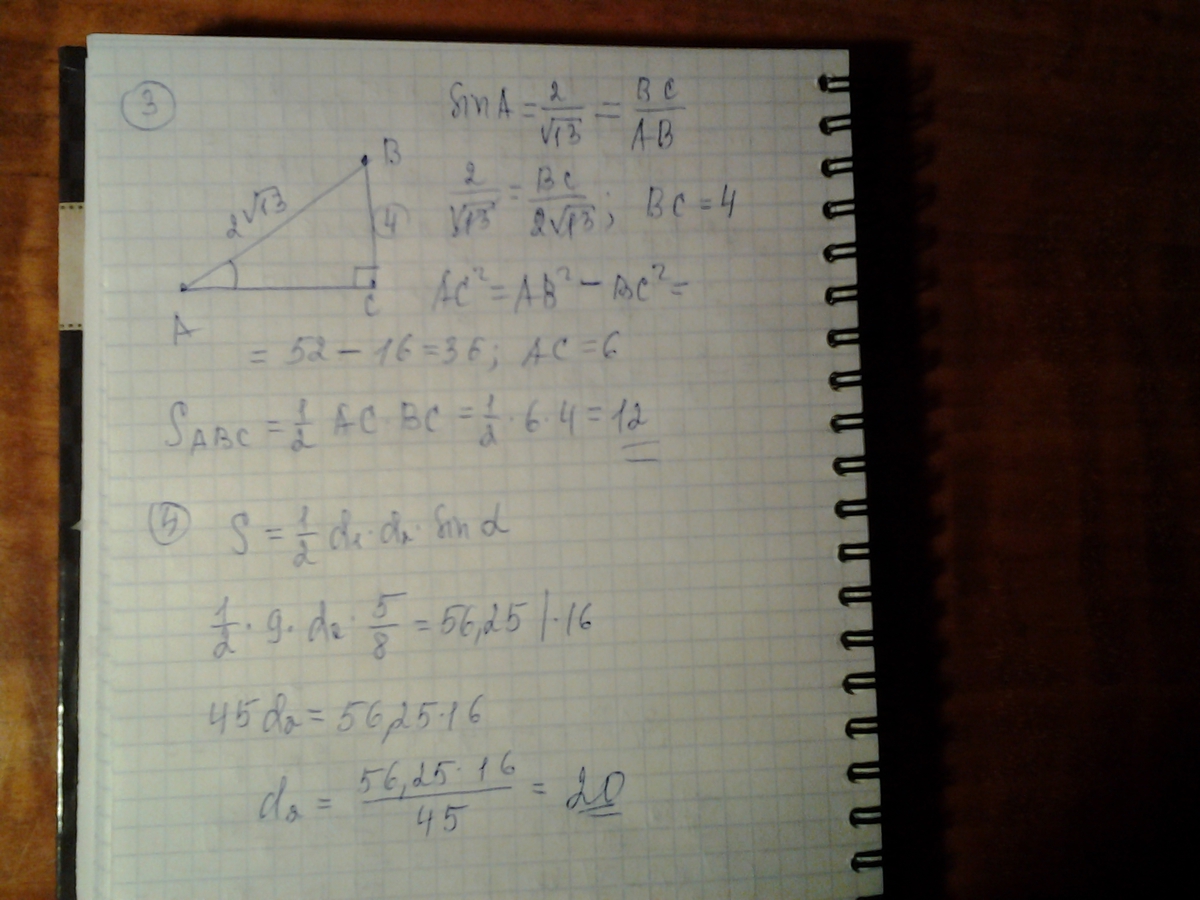 3
sin A = 2/√13 = BC/AB
B
2√13
4
2/√13 = BC/2√13; BC = 4
A
C
AC² = AB² − BC² =
= 52 − 16 = 36; AC = 6
S_ABC = 1/2 AC · BC = 1/2 · 6 · 4 = 12
5
S = 1/2 d₁ · d₂ · sin α
1/2 · 9 · d₂ · 5/8 = 56,25 | · 16
45 d₂ = 56,25 · 16
d₂ = 56,25 · 16/45 = 20